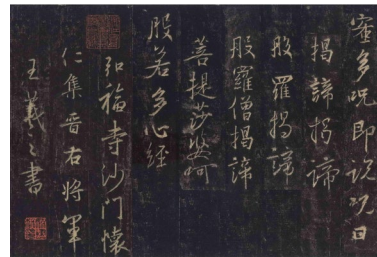 蜜多咒即说咒曰
揭諦揭諦
般羅揭諦
般羅僧揭諦
菩提莎婆呵
般若多心経
弘福寺沙門懷
仁集晉右將軍
王羲之書